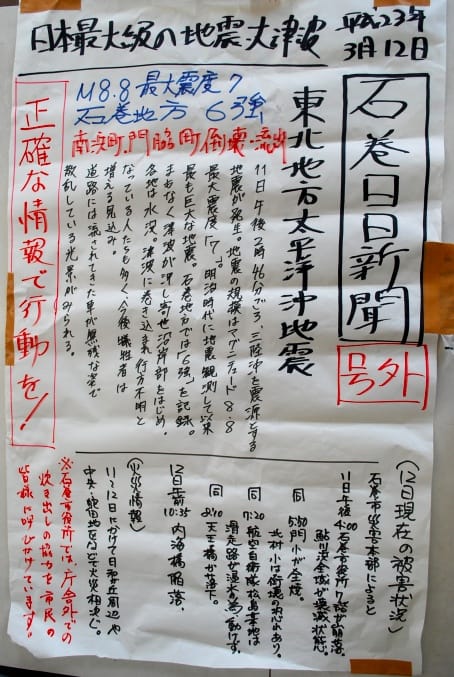 日本最大級の地震・大津波
平成23年
3月12日
石巻日日新聞
号外
東北地方太平洋沖地震
M8.8 最大震度7
石巻地方 6強
南浜町、門脇町倒壊・流出
11日午後2時46分ごろ、三陸沖を震源とする
地震が発生。地震の規模はマグニチュード8.8
最大震度「7」。明治時代に地震観測して以来
最も巨大な地震。石巻地方では「6強」を記録。
まもなく津波が押し寄せ沿岸部をはじめ、
各地は水没。津波に巻き込まれ行方不明と
なっている人たちも多く、今後犠牲者は
増える見込み。
道路には流されてきた車が無残な姿で
散乱している光景がみられる。
正確な情報で行動を!
(12日現在の被害状況)
石巻市災害本部によると
11日午後4:00 石巻市役所7階が崩落。
鮎川浜全域が壊滅状態。
同 5:50 門小が全焼。
北村小は街境の恐れあり。
同 7:20 航空自衛隊松島基地は
滑走路が浸水為動けず。
同 8:10 天王橋が落下。
12日午前10:35 内海橋陥落。
(火災情報)
11〜12日にかけて日和が丘周辺や
中央・蛇田地区などで火災相次ぐ。
※石巻市役所では、庁舎外での
炊き出しの協力を市民の
皆様に呼びかけています。